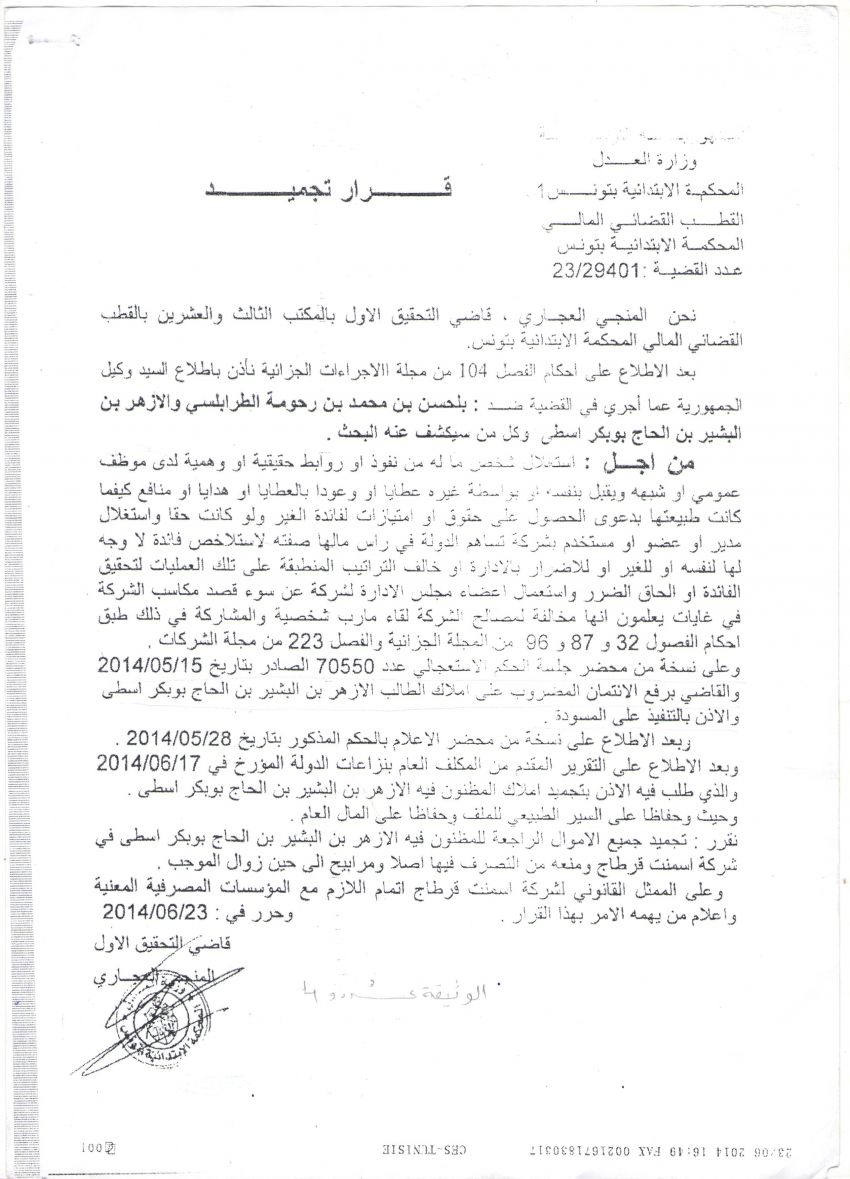 وزارة العـــدل
المحكمة الابتدائية بتونـــس1
قـــــرار تجميـــــــد
القطـــب القضائـــي المالـــي
المحكمة الابتدائيــة بتونس
عدد القضيـة :23/29401
نحن المنجي العجاري ، قاضي التحقيق الاول بالمكتب الثالث والعشرين بالقطب
القضائي المالي المحكمة الابتدائية بتونس.
بعد الاطلاع على احكام الفصل 104 من مجلة االاجراءات الجزائية نأذن باطلاع السيد وكيل
الجمهورية عما أجري في القضية ضــد : بلحسن بن محمد بن رحومة الطرابلسي والازهر بن
البشير بن الحاج بوبكر اسطى وكل من سيكشف عنه البحث .
من اجــل : استغلال شخص ما له من نفوذ او روابط حقيقية او وهمية لدى موظف
عمومي او شبهه ويقبل بنفسه او بواسطة غيره عطايا او وعودا بالعطايا او هدايا او منافع كيفما
كانت طبيعتها بدعوى الحصول على حقوق او امتيازات لفائدة الغير ولو كانت حقا واستغلال
مدير او عضو او مستخدم بشركة تساهم الدولة في راس مالها صفته لاستلاخص فائدة لا وجه
لها لنفسه او للغير او للاضرار بالادارة او خالف التراتيب المنطبقة على تلك العمليات لتحقيق
الفائدة او الحاق الضرر واستعمال اعضاء مجلس الادارة لشركة عن سوء قصد مكاسب الشركة
في غايات يعلمون انها مخالفة لمصالح الشركة لقاء مارب شخصية والمشاركة في ذلك طبق
احكام الفصول 32 و 87 و 96 من المجلة الجزائية والفصل 223 من مجلة الشركات .
وعلى نسخة من محضر جلسة الحكم الاستعجالي عدد 70550 الصادر بتاريخ 2014/05/15
والقاضي برفع الائتمان المضروب على املاك الطالب الازهر بن البشير بن الحاج بوبكر اسطى
والاذن بالتنفيذ على المسودة .
وبعد الاطلاع على نسخة من محضر الاعلام بالحكم المذكور بتاريخ 2014/05/28 .
وبعد الاطلاع على التقرير المقدم من المكلف العام بنزاعات الدولة المؤرخ في 2014/06/17
والذي طلب فيه الاذن بتجميد املاك المظنون فيه الازهر بن البشير بن الحاج بوبكر اسطى .
وحيث وحفاظا على السير الطبيعي للملف وحفاظا على المال العام .
نقرر : تجميد جميع الاموال الراجعة للمظنون فيه الازهر بن البشير بن الحاج بوبكر اسطى في
شركة اسمنت قرطاج ومنعه من التصرف فيها اصلا ومرابيح الى حين زوال الموجب .
وعلى الممثل القانوني لشركة اسمنت قرطاج اتمام اللازم مع المؤسسات المصرفية المعنية
واعلام من يهمه الامر بهذا القرار . وحرر في : 2014/06/23
قاضي التحقيق الاول
المنجي العجاري
الوثيقة
23/06 2014 16:49 FAX 0021671830317 CES-TUNISIE 001